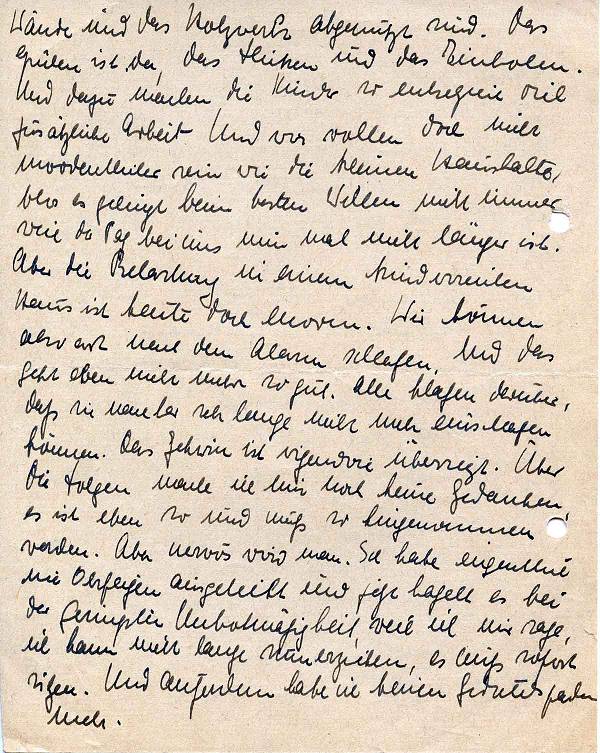 Wände und das Holzwerk abgenutzt sind. Das
Spülen ist da, das Flicken und das Einholen.
Und dazu machen die Kinder so entsetzlich viel
zusätzliche Arbeit. Und wir wollen doch nicht
unordentlicher sein wie die kleinen Haushalte,
blos es gelingt beim besten Willen nicht immer
weil der Tag bei uns nun mal nicht länger ist.
Aber die Belastung in einem kinderreichen
Haus ist heute doch enorm. Wir können
also erst nach dem Alarm schlafen. Und das
geht eben nicht mehr so gut. Alle klagen darüber,
daß sie nachher sehr lange nicht mehr einschlafen
können. Das Gehirn ist irgendwie überreizt. Über
die Folgen mache ich mir noch keine Gedanken,
es ist eben so und muß so hingenommen
werden. Aber nervös wird man. Ich habe eigentlich
nie Ohrfeigen ausgeteilt und jetzt hagelt es bei
der geringsten Unbotmäßigkeit, weil ich mir sage,
ich kann nicht lange rumerziehen, es muß sofort
sitzen. Und außerdem habe ich keinen Geduldsfaden
mehr.